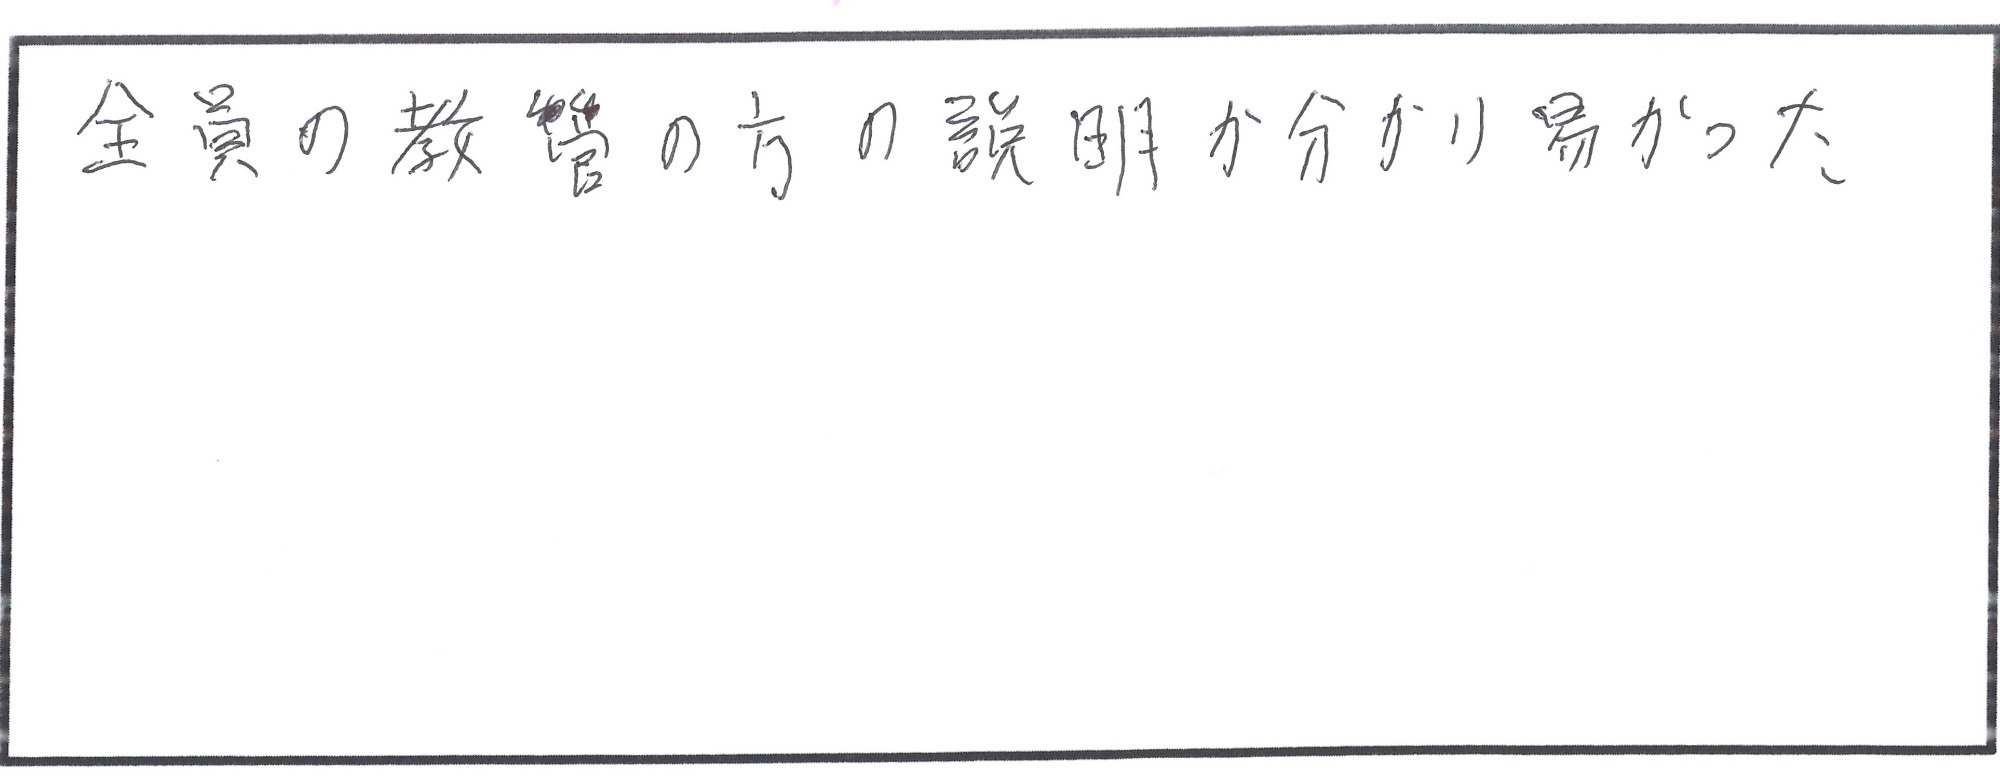 全員の教管の方の説明が分かり易かった